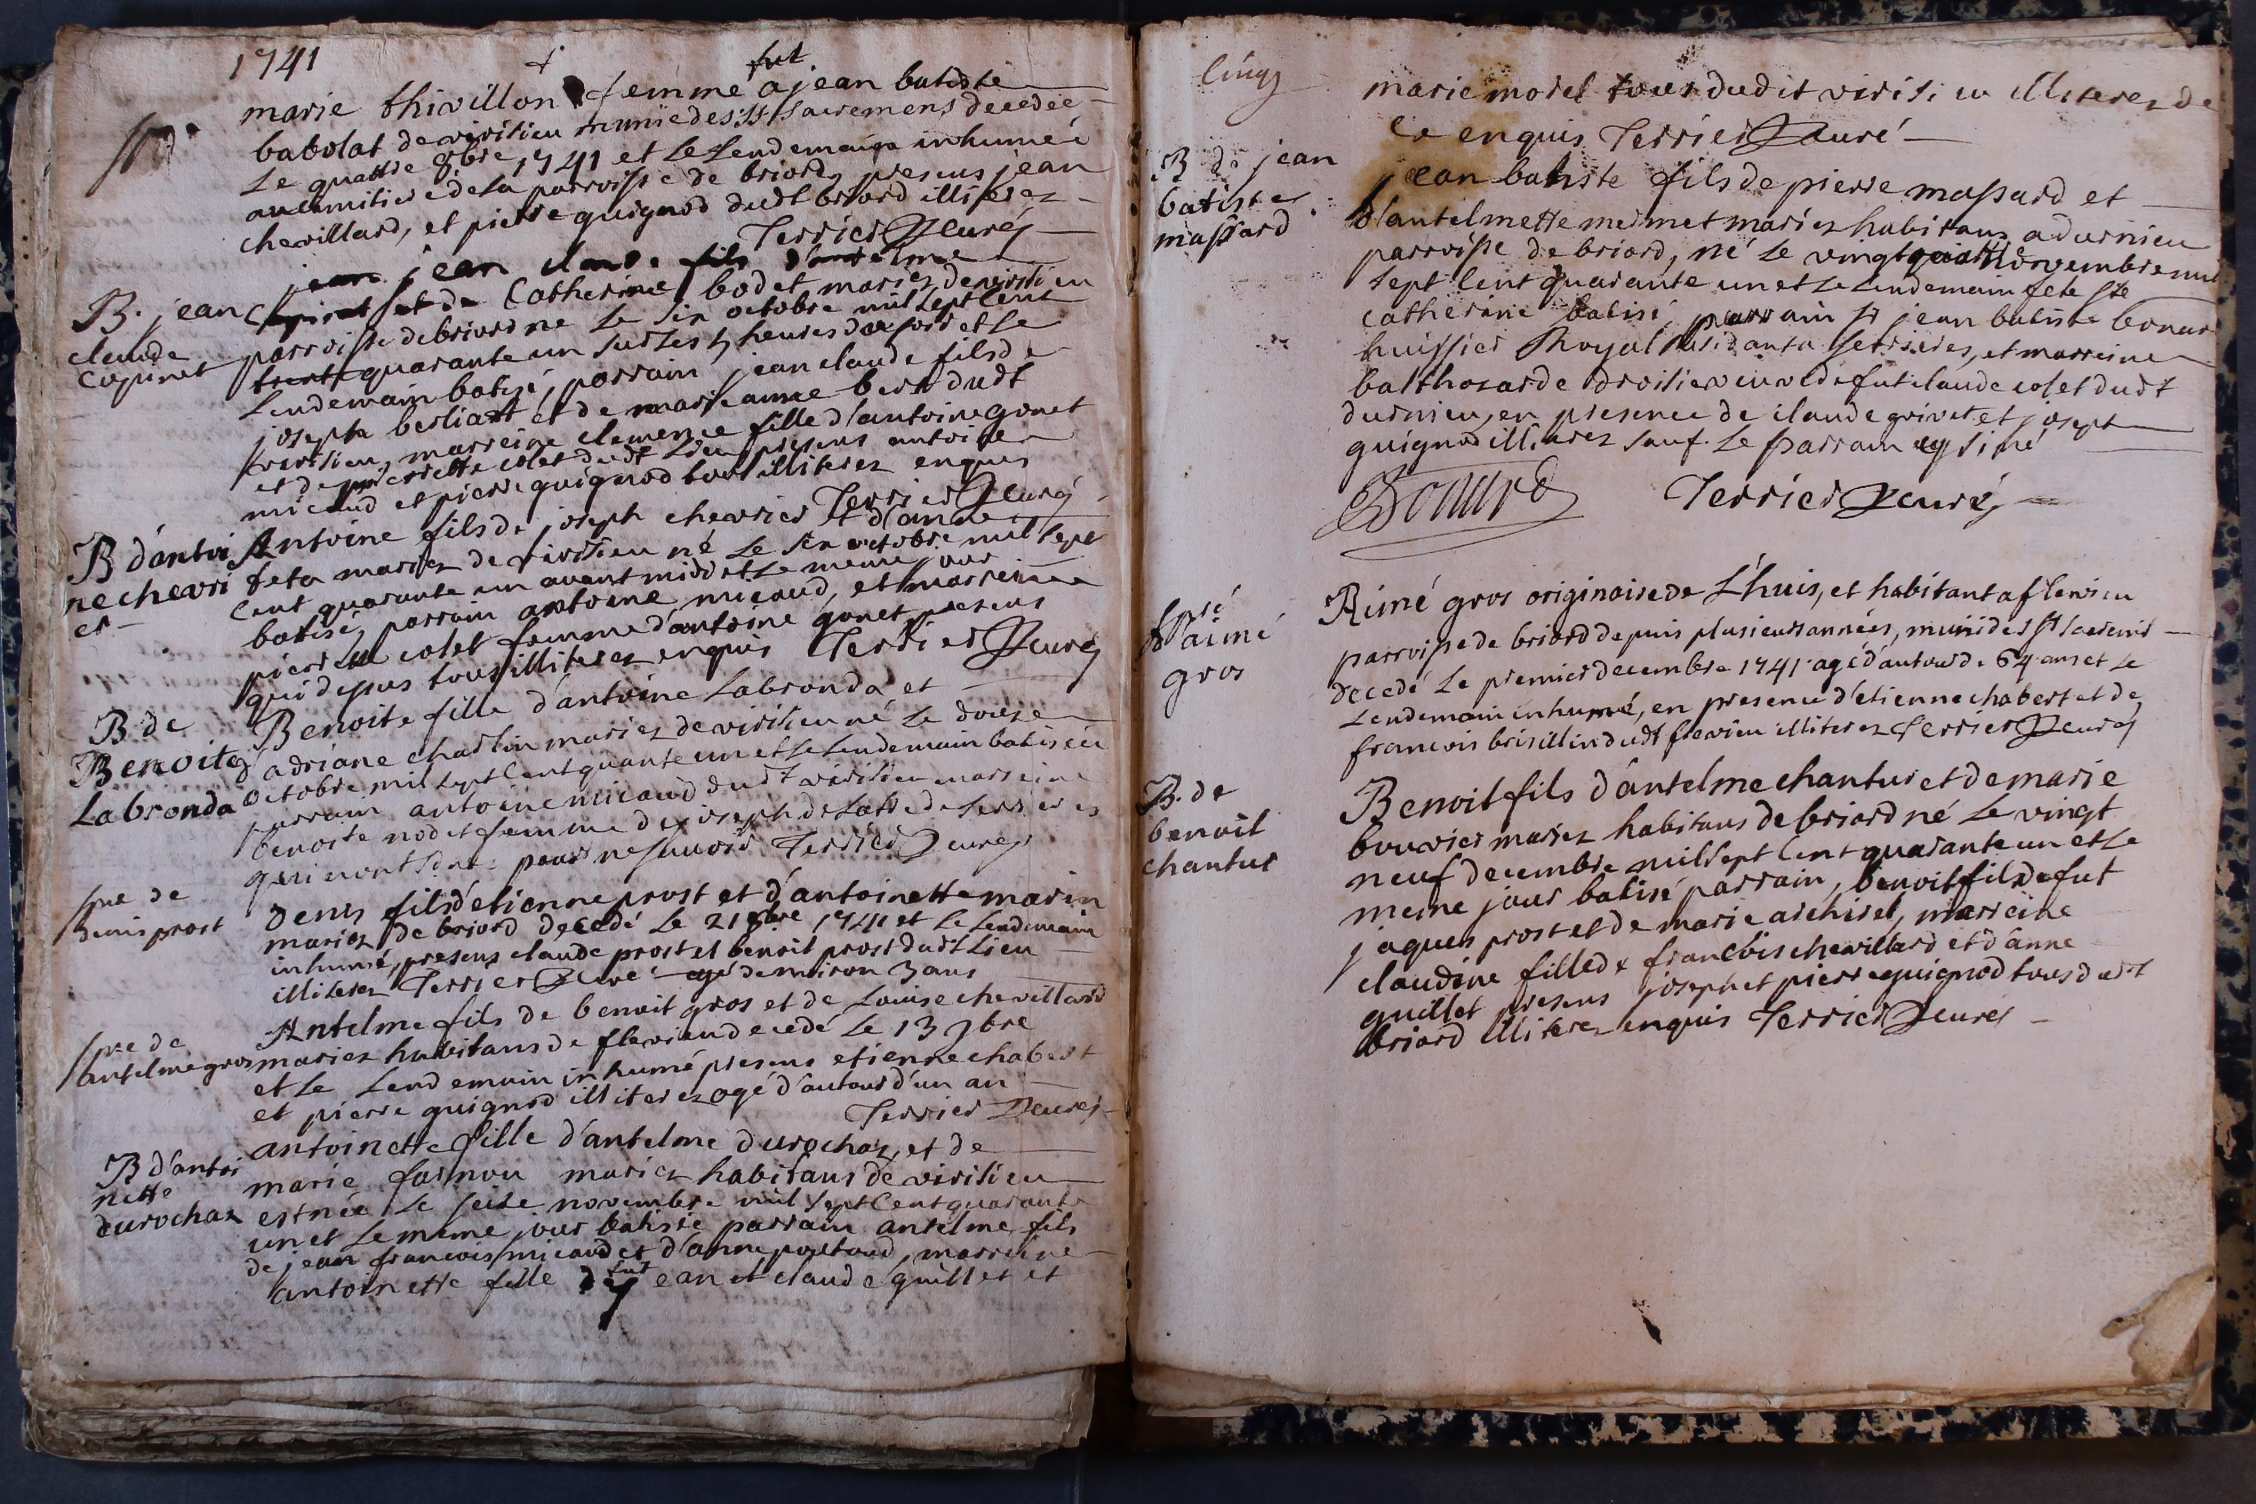 1741
fut
marie thivillon femme a jean batiste
babolat de virisieu munie des Sts sacremens decedée
le quattre 8bre 1741 et le lendemain inhumée
au cimitiere de la parroisse de briord, presens jean
chevillard, et pierre guignod dudt briord illiterez
Terrier curé
B. jean
claude
jean claude fils d'antelme
et de Catherine bodet mariez de virisieu
parroisse de briord ne le six octobre mil sept cent
quarante un sur les heures du soir et le
lendemain batisé, parrain jean claude fils de
joseph berliart et de marie anne dudt
virisieu, marreine clemence fille d'antoine gonet
et de pierrette colet dudt lieu presens antoine
micaud et pierre guignod tous illiterez enquis
Terrier curé
B d'antoi
ne chevri
er
Antoine fils de joseph chevrier et d'anne
feta mariez de virisieu né le six octobre mil sept
cent quarante un avant midi et le meme jour
batisé, parrain antoine micaud, et marreine
pierrette colet femme d'antoine gonet presens
que dessus tous illiterez enquis Terrier curé
B de
Benoite
Labronda
Benoite fille d'antoine Labronda et
d'adriane charlin mariez de virisieu né le douze
octobre mil sept cent quarante un et le lendemain batisée
parrain antoine micaud dudt virisieu marreine
benoite nodet femme de joseph delatre de serrieres
qui n'ont siné pour ne sçavoir Terrier curé
spre de
denis prost
Denis fils d'etienne prost et d'antoinette marin
mariez de briord decedé le 21 8bre 1741 et le lendemain
inhumé, presens claude prost et benoit prost dudt lieu
illiterez Terrier curé agé d'environ 3 ans
spre de
antelme gros
Antelme fils de benoit gros et de Louise chevillard
mariez habitans de flevieu decedé le 13 9bre
et le lendemain inhumé presens etienne chabert
et pierre guignod illiterez agé d'autour d'un an
Terrier curé
B d'antoi
nette
durochaz
antoinette fille d'antelme durochaz et de
marie farnou mariez habitans de virisieu
est née le seize novembre mil sept cent quarante
un et le meme jour batisée parrain antelme fils
de jean francois micaud et d'anne poltoud, marreine
antoinette fille de fut jean claude guillet et
cinq
marie morel tous dudit virisieu illiterez de
ce enquis Terrier curé
B de jean
batiste
massard
jean batiste fils de pierre massard et
d'antelmette mermet mariez habitans a durnieu
parroisse de briord, né le vingt quatre novembre mil
sept cent quarante un et le lendemain fete ste
catherine batisé, parrain sr jean batiste bonard
huissier Royal residant a serrieres, et marreine
balthazarde droilie veuve de fut claude colet dudt
durnieu, en presence de claude grivet et josept
guignod illiterez sauf le parrain qui a siné
Bonard Terrier curé
spre
d'aimé
gros
Aimé gros originaire de L'huis, et habitant a flevieu
parroisse de briord depuis plusieurs années, muni des Sts sacremens
decedé le premier decembre 1741 agé d'autour de 64 ans et le
lendemain inhumé, en presence d'etienne chabert et de
francois brisillin dudt flevieu illiterez Terrier curé
B. de
benoit
chantur
Benoit fils d'antelme chantur et de marie
bouvier mariez habitans de briord né le vingt
neuf decembre mil sept cent quarante un et le
meme jour batisé parrain, benoit fils de fut
jaques prost et de marie archirel, marreine
claudine fille de francois chevillard et d'anne
guillet presens joseph et pierre guignod tous dudt
briord illiterez enquis Terrier curé